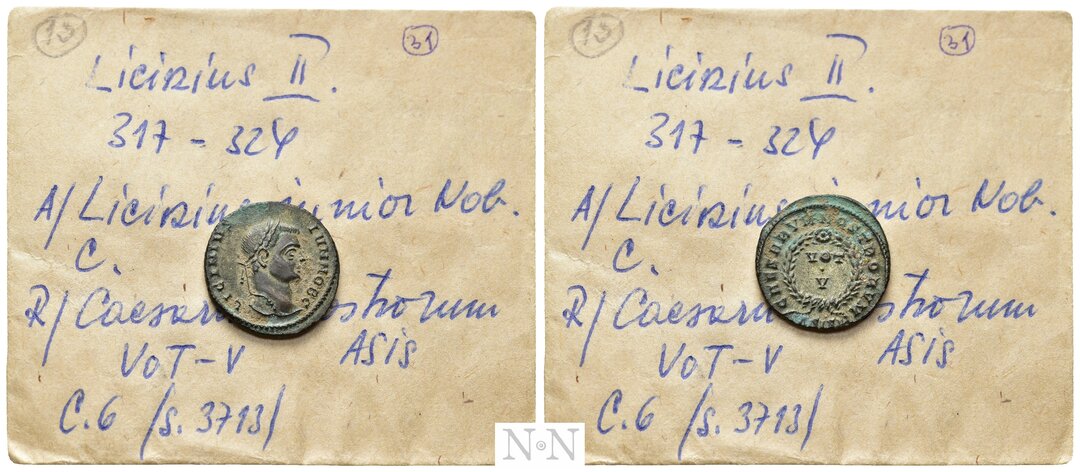 13 31
Licinius II.
317 - 324
A/ Licinius iunior Nob.
C.
R/ Caesarum nostrorum
VOT-V ASIS
C.6 /s. 3713/
LICINIVS IVN NOB C
13 31
Licinius II.
317 - 324
A/ Licinius iunior Nob.
C.
R/ Caesarum nostrorum
VOT-V ASIS
C.6 /s. 3713/
VOT
V
N·N